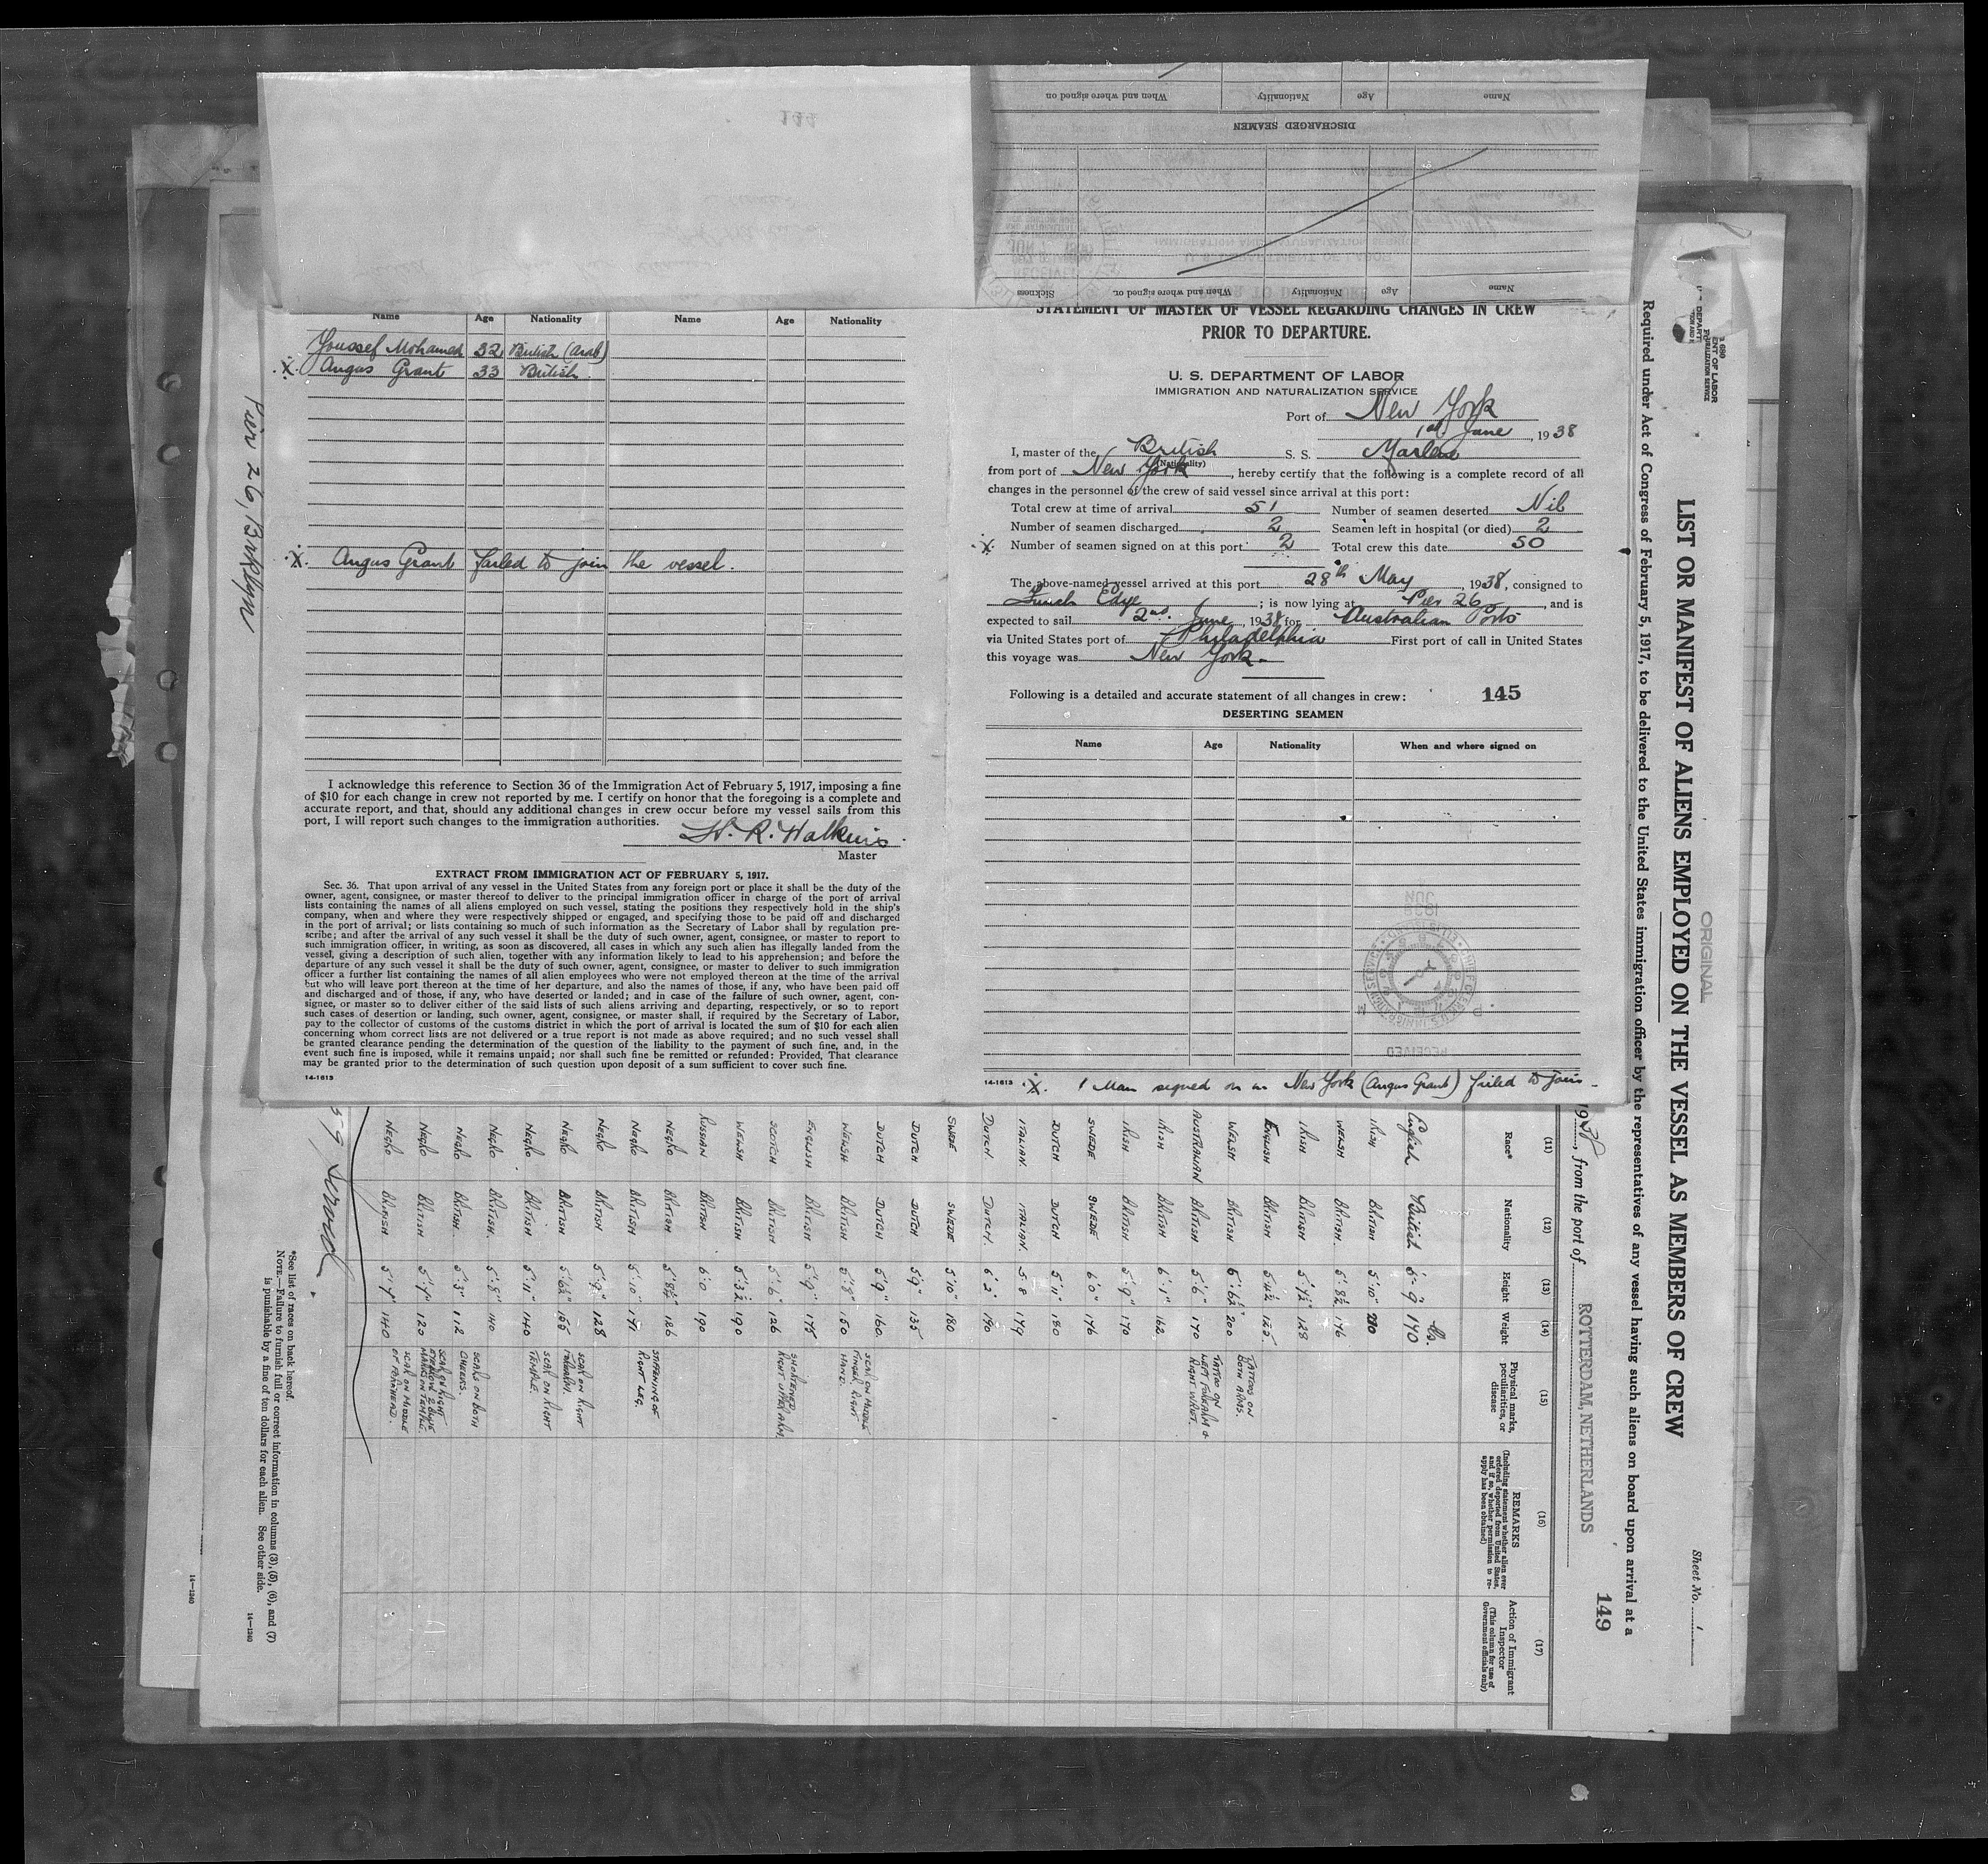 Name Age Nationality When and where signed on
DISCHARGED SEAMEN
Name Age Nationality When and where signed on Sickness
Name Age Nationality Name Age Nationality
Youssef Mohamed 32 British (Arab)
X. Angus Grant 33 British
X. Angus Grant failed to join the vessel.
Pier 26, Brooklyn
I acknowledge this reference to Section 36 of the Immigration Act of February 5, 1917, imposing a fine
of $10 for each change in crew not reported by me. I certify on honor that the foregoing is a complete and
accurate report, and that, should any additional changes in crew occur before my vessel sails from this
port, I will report such changes to the immigration authorities.
Master
EXTRACT FROM IMMIGRATION ACT OF FEBRUARY 5, 1917.
Sec. 36. That upon arrival of any vessel in the United States from any foreign port or place it shall be the duty of the
owner, agent, consignee, or master thereof to deliver to the principal immigration officer in charge of the port of arrival
lists containing the names of all aliens employed on such vessel, stating the positions they respectively hold in the ship's
company, when and where they were respectively shipped or engaged, and specifying those to be paid off and discharged
in the port of arrival; or lists containing so much of such information as the Secretary of Labor shall by regulation pre-
scribe; and after the arrival of any such vessel it shall be the duty of such owner, agent, consignee, or master to report to
such immigration officer, in writing, as soon as discovered, all cases in which any such alien has illegally landed from the
vessel, giving a description of such alien, together with any information likely to lead to his apprehension; and before the
departure of any such vessel it shall be the duty of such owner, agent, consignee, or master to deliver to such immigration
officer a further list containing the names of all alien employees who were not employed thereon at the time of the arrival
but who will leave port thereon at the time of her departure, and also the names of those, if any, who have been paid off
and discharged and of those, if any, who have deserted or landed; and in case of the failure of such owner, agent, con-
signee, or master so to deliver either of the said lists of such aliens arriving and departing, respectively, or so to report
such cases of desertion or landing, such owner, agent, consignee, or master shall, if required by the Secretary of Labor,
pay to the collector of customs of the customs district in which the port of arrival is located the sum of $10 for each alien
concerning whom correct lists are not delivered or a true report is not made as above required; and no such vessel shall
be granted clearance pending the determination of the question of the liability to the payment of such fine, and, in the
event such fine is imposed, while it remains unpaid; nor shall such fine be remitted or refunded: Provided, That clearance
may be granted prior to the determination of such question upon deposit of a sum sufficient to cover such fine.
14-1613
STATEMENT OF MASTER OF VESSEL REGARDING CHANGES IN CREW
PRIOR TO DEPARTURE.
U. S. DEPARTMENT OF LABOR
IMMIGRATION AND NATURALIZATION SERVICE
Port of New York
1st June, 1938
I, master of the British S. S.
(Nationality)
from port of New York, hereby certify that the following is a complete record of all
changes in the personnel of the crew of said vessel since arrival at this port:
Total crew at time of arrival 51 Number of seamen deserted Nil
Number of seamen discharged 2 Seamen left in hospital (or died) 2
X Number of seamen signed on at this port 2 Total crew this date 50
The above-named vessel arrived at this port 28th May, 1938, consigned to
Funch Edye; is now lying at Pier 26, and is
expected to sail 2nd June, 1938 for Australian Ports
via United States port of Philadelphia First port of call in United States
this voyage was New York.
Following is a detailed and accurate statement of all changes in crew: 145
DESERTING SEAMEN
Name Age Nationality When and where signed on
RECEIVED
14-1613 X. 1 Man signed on in New York (Angus Grant) failed to join
ORIGINAL
Sheet No. 1
LIST OR MANIFEST OF ALIENS EMPLOYED ON THE VESSEL AS MEMBERS OF CREW
Required under Act of Congress of February 5, 1917, to be delivered to the United States immigration officer by the representatives of any vessel having such aliens on board upon arrival at a
149
1938, from the port of ROTTERDAM, NETHERLANDS
(11) (12) (13) (14) (15) (16) (17)
Race* Nationality Height Weight Physical marks, peculiarities, or disease REMARKS (Including statement whether alien ever ordered deported from United States, and if so, whether permission to re-apply has been obtained) Action of Immigrant Inspector (This column for use of Government officials only)
English British 5-9 170 lbs.
IRISH BRITISH 5'10"
WELSH BRITISH. 5'8½ 176
IRISH BRITISH 128
ENGLISH BRITISH 5'4½ 122. TATTOOS ON BOTH ARMS.
WELSH BRITISH 200
AUSTRALIAN BRITISH 5'6" 170
IRISH BRITISH 6'1" 162
IRISH BRITISH 5'9" 170
SWEDE SWEDE 6'0" 176
DUTCH DUTCH 5'11" 180
ITALIAN. ITALIAN. 5-8 174
DUTCH DUTCH. 6'2" 190
SWEDE SWEDE 5'10" 180
DUTCH DUTCH 5'9" 135
DUTCH DUTCH 5'9" 160
WELSH BRITISH 5'8" 150 SCAR ON MIDDLE FINGER, RIGHT HAND.
ENGLISH BRITISH 5'9" 175
SCOTCH BRITISH 5'6" 126 SHORTENED RIGHT UPPER ARM.
WELSH BRITISH 190
RUSSIAN BRITISH 6'0 190
NEGRO BRITISH 5'8½" 126
NEGRO BRITISH 5'10" STIFFENING OF RIGHT LEG.
NEGRO BRITISH 5'9" 128
NEGRO BRITISH 5'6½" SCAR ON RIGHT FOREARM.
NEGRO BRITISH 5'11" 140 SCAR ON RIGHT TEMPLE.
NEGRO BRITISH. 5'8" 140
NEGRO BRITISH. 5'3" 112 SCARS ON BOTH CHEEKS.
NEGRO BRITISH 120
NEGRO BRITISH 140 SCAR ON MIDDLE OF FOREHEAD.
*See list of races on back hereof.
NOTE.—Failure to furnish full or correct information in columns (3), (5), (6), and (7)
is punishable by a fine of ten dollars for each alien. See other side.
14—1240
14—1240